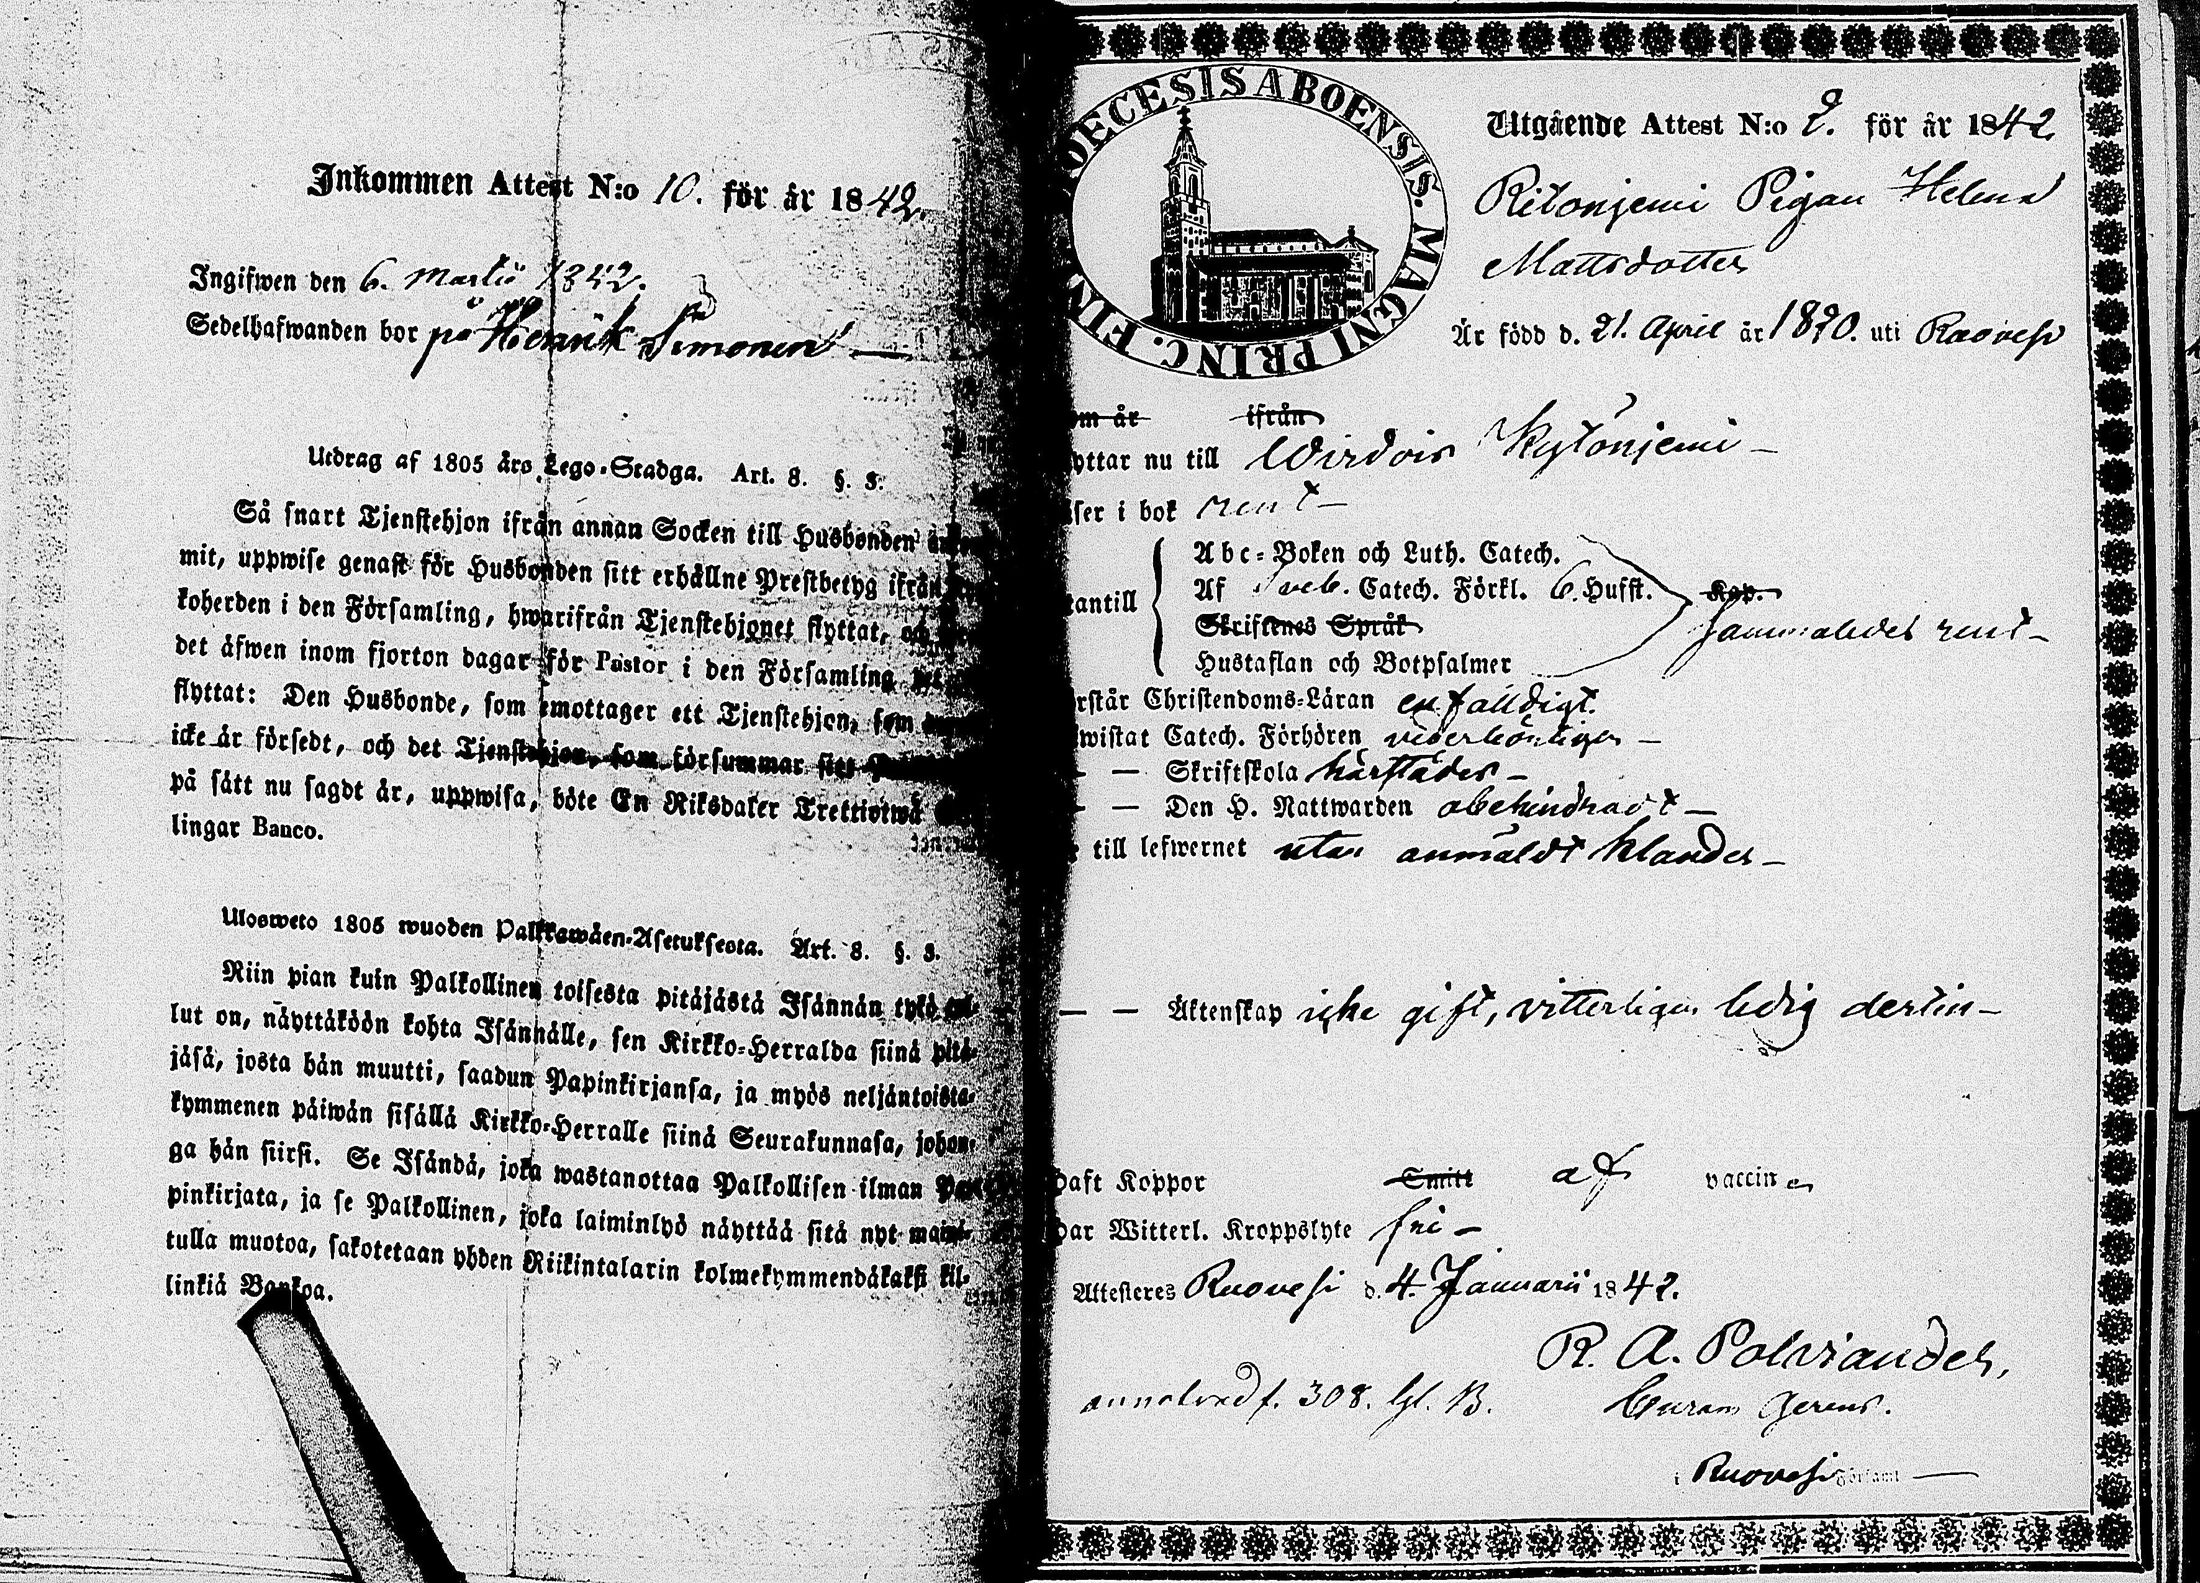 Inkommen Attest N:o 10. för år 1842.
Ingifwen den 6. Martii 1842.
Sedelhafwanden bor på Henrik Simonen —
Utdrag af 1805 års Lego-Stadga. Art. 8. §. 3.
Så snart Tjenstehjon ifrån annan Socken till Husbonden
mit, uppwise genast för Husbonden sitt erhållne Prestbetyg ifrån
koherden i den Församling, hwarifrån Tjenstehjonet flyttat, och
det äfwen inom fjorton dagar för Pastor i den Församling
flyttat: Den Husbonde, som emottager ett Tjenstehjon, som
icke är försedt, och det Tjenstehjon, som försummar sitt
på sätt nu sagdt är, uppwisa, böte En Riksdaler Trettiotwå
lingar Banco.
Ulosweto 1805 wuoden Palkkawäen-Asetuksesta. Art. 8. §. 3.
Niin pian kuin Palkollinen toisesta pitäjästä Isännän tykö tul-
lut on, näyttäköön kohta Isännälle, sen Kirkko-Herralda siinä pitä-
jäsä, josta hän muutti, saadun Papinkirjansa, ja myös neljäntoista-
kymmenen päiwän sisällä Kirkko-Herralle siinä Seurakunnasa, johon-
ga hän siirsi. Se Isändä, joka wastanottaa Palkollisen ilman Pa-
pinkirjata, ja se Palkollinen, joka laiminlyö näyttää sitä nyt maini-
tulla muotoa, sakotetaan yhden Riikintalarin kolmekymmendäkaksi kil-
linkiä Bankoa.
DIOECESIS ABOENSIS. MAGNI PRINC. FIN
Utgående Attest N:o 2. för år 1842.
Ritonjemi Pigan Helena
Mattsdotter
Är född d. 21. April år 1820. uti Ruovesi
om år ifrån
yttar nu till Wirdois Kytönjemi —
äser i bok rent —
tantill
Abc-Boken och Luth. Catech.
Af Sveb. Catech. Förkl. 6. Hufst. Kap.
Skriftenes Språk sammaledes rent —
Hustaflan och Botpsalmer
rstår Christendoms-Läran enfaldigt.
wistat Catech. Förhören vederbörligen —
— — Skriftskola härstädes —
— — Den H. Nattwarden obehindradt —
till lefwernet utan anmäldt klander —
— — Äktenskap icke gift, vitterligen ledig dertill —
haft Koppor Smitt af vaccin en
har Witterl. Kroppslyte fri —
Attesteres Ruovesi d. 4. Januarii 1842.
R. A. Polviander,
annoterad f. 308. Lgl. B. Curam Gerens.
i Ruovesi Församl —